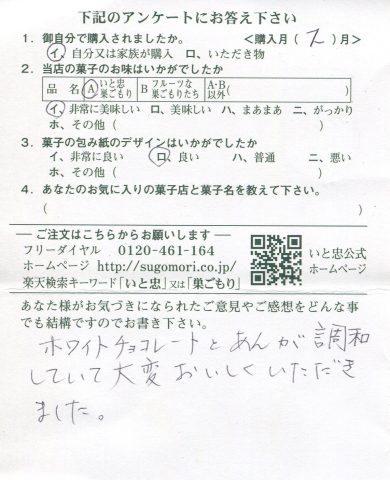 下記のアンケートにお答え下さい
1．御自分で購入されましたか。 ＜購入月（2）月＞
イ、自分又は家族が購入 ロ、いただき物
2．当店の菓子のお味はいかがでしたか
品 名 A いと忠 巣ごもり B フルーツな 巣ごもりたち A・B 以外（ ）
イ、非常に美味しい ロ、美味しい ハ、まあまあ ニ、がっかり
ホ、その他（ ）
3．菓子の包み紙のデザインはいかがでしたか
イ、非常に良い ロ、良い ハ、普通 ニ、悪い
ホ、その他（ ）
4．あなたのお気に入りの菓子店と菓子名を教えて下さい。
（ ）
― ご注文はこちらからお願いします ―
フリーダイヤル 0120-461-164
ホームページ http://sugomori.co.jp/
楽天検索キーワード「いと忠」又は「巣ごもり」
いと忠公式
ホームページ
あなた様がお気づきになられたご意見やご感想をどんな事
でも結構ですのでお書き下さい。
ホワイトチョコレートとあんが調和
していて大変おいしくいただき
ました。